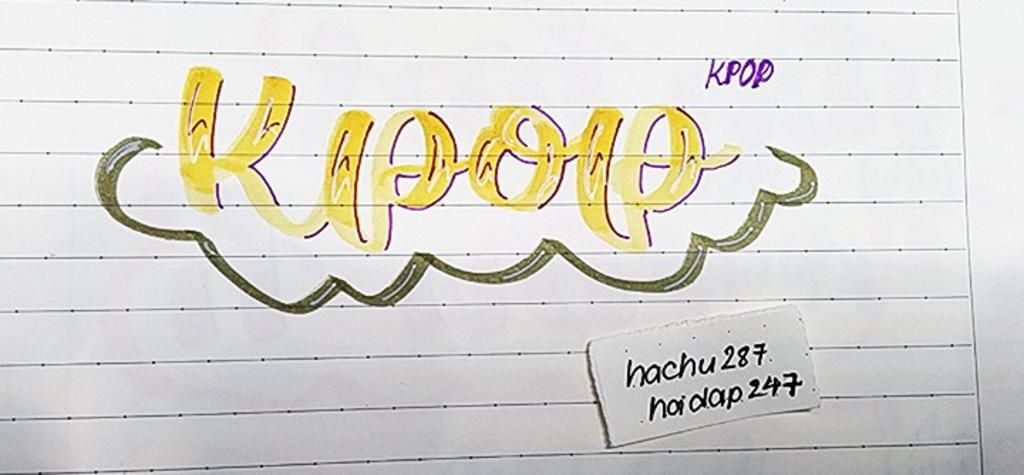 Kpop
KPOP
hachu287
hoidap247